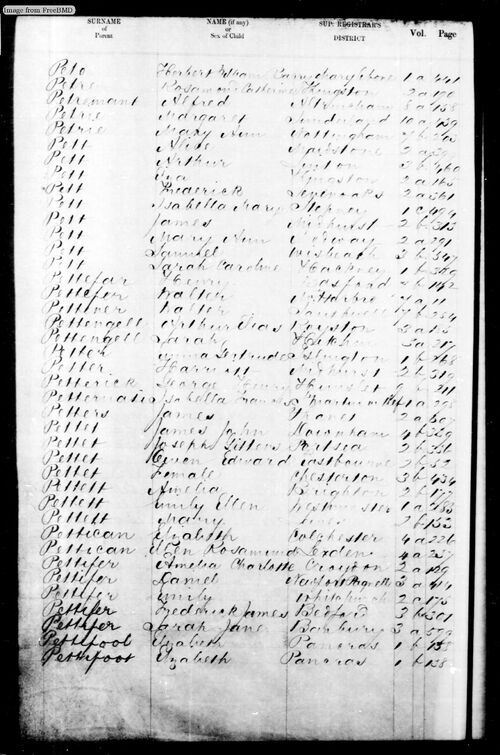 Image from FreeBMD
SURNAME of Parent NAME (if any) or Sex of Child SUP: REGISTRAR'S DISTRICT Vol. Page
Peto Herbert 1 a 441
Petre Rosamond Catherine Kingston 2 a 190
Petremant Alfred Altrincham 8 a 158
Petrie Margaret Sunderland 10 a
Petrie Mary Ann Nottingham 7 b
Pett Alice Maidstone 2 a
Pett Arthur Linton 3 b
Pett Kingston 2 a
Pett Frederick Sevenoaks 2 a 361
Pett Isabella Maria Stepney 1 c 494
Pett James Midhurst 2 b 313
Pett Mary Ann Medway 2 a 291
Pett Samuel Wisbeach 3 b 547
Pett Sarah Caroline Hackney 1 b
Pettefar Henry 7 b
Pettefer Walter M. Harbro 7 a 11
Pettener Walter Southwell 7 b 254
Pettengell Arthur Elias Royston 3 a
Pettengell Sarah Hitchin 3 a
Petter Emma Gertrude Islington 1 b
Petter Harriett Midhurst 2 b 310
Petterick George Henry Hunslet 9 b 211
Isabella Frances 1 a 295
Petters James Thanet 2 a 607
Pettet James John Downham 4 b 329
Pettet Joseph Gittens Portsea 2 b 336
Pettet Owen Edward Eastbourne 2 b 52
Pettet Female Chesterton 3 b 434
Pettett Amelia Brighton 2 b 177
Pettett Emily Ellen Westminster 1 a
Pettett Harry Lewes 2 b 152
Pettican Elizabeth Colchester 4 a 226
Pettican Ellen Rosamund Lexden 4 a 237
Pettifer Amelia Charlotte Croydon 2 a 129
Pettifer Daniel Newport Pagnell 3 a 414
Pettifer Emily Whitchurch 2 a 175
Pettifer Frederick James Bedford 3 b 301
Pettifer Sarah Jane Banbury 3 a 579
Pettifool Elizabeth Pancras 1 b 138
Pettifoot Elizabeth Pancras 1 b 138